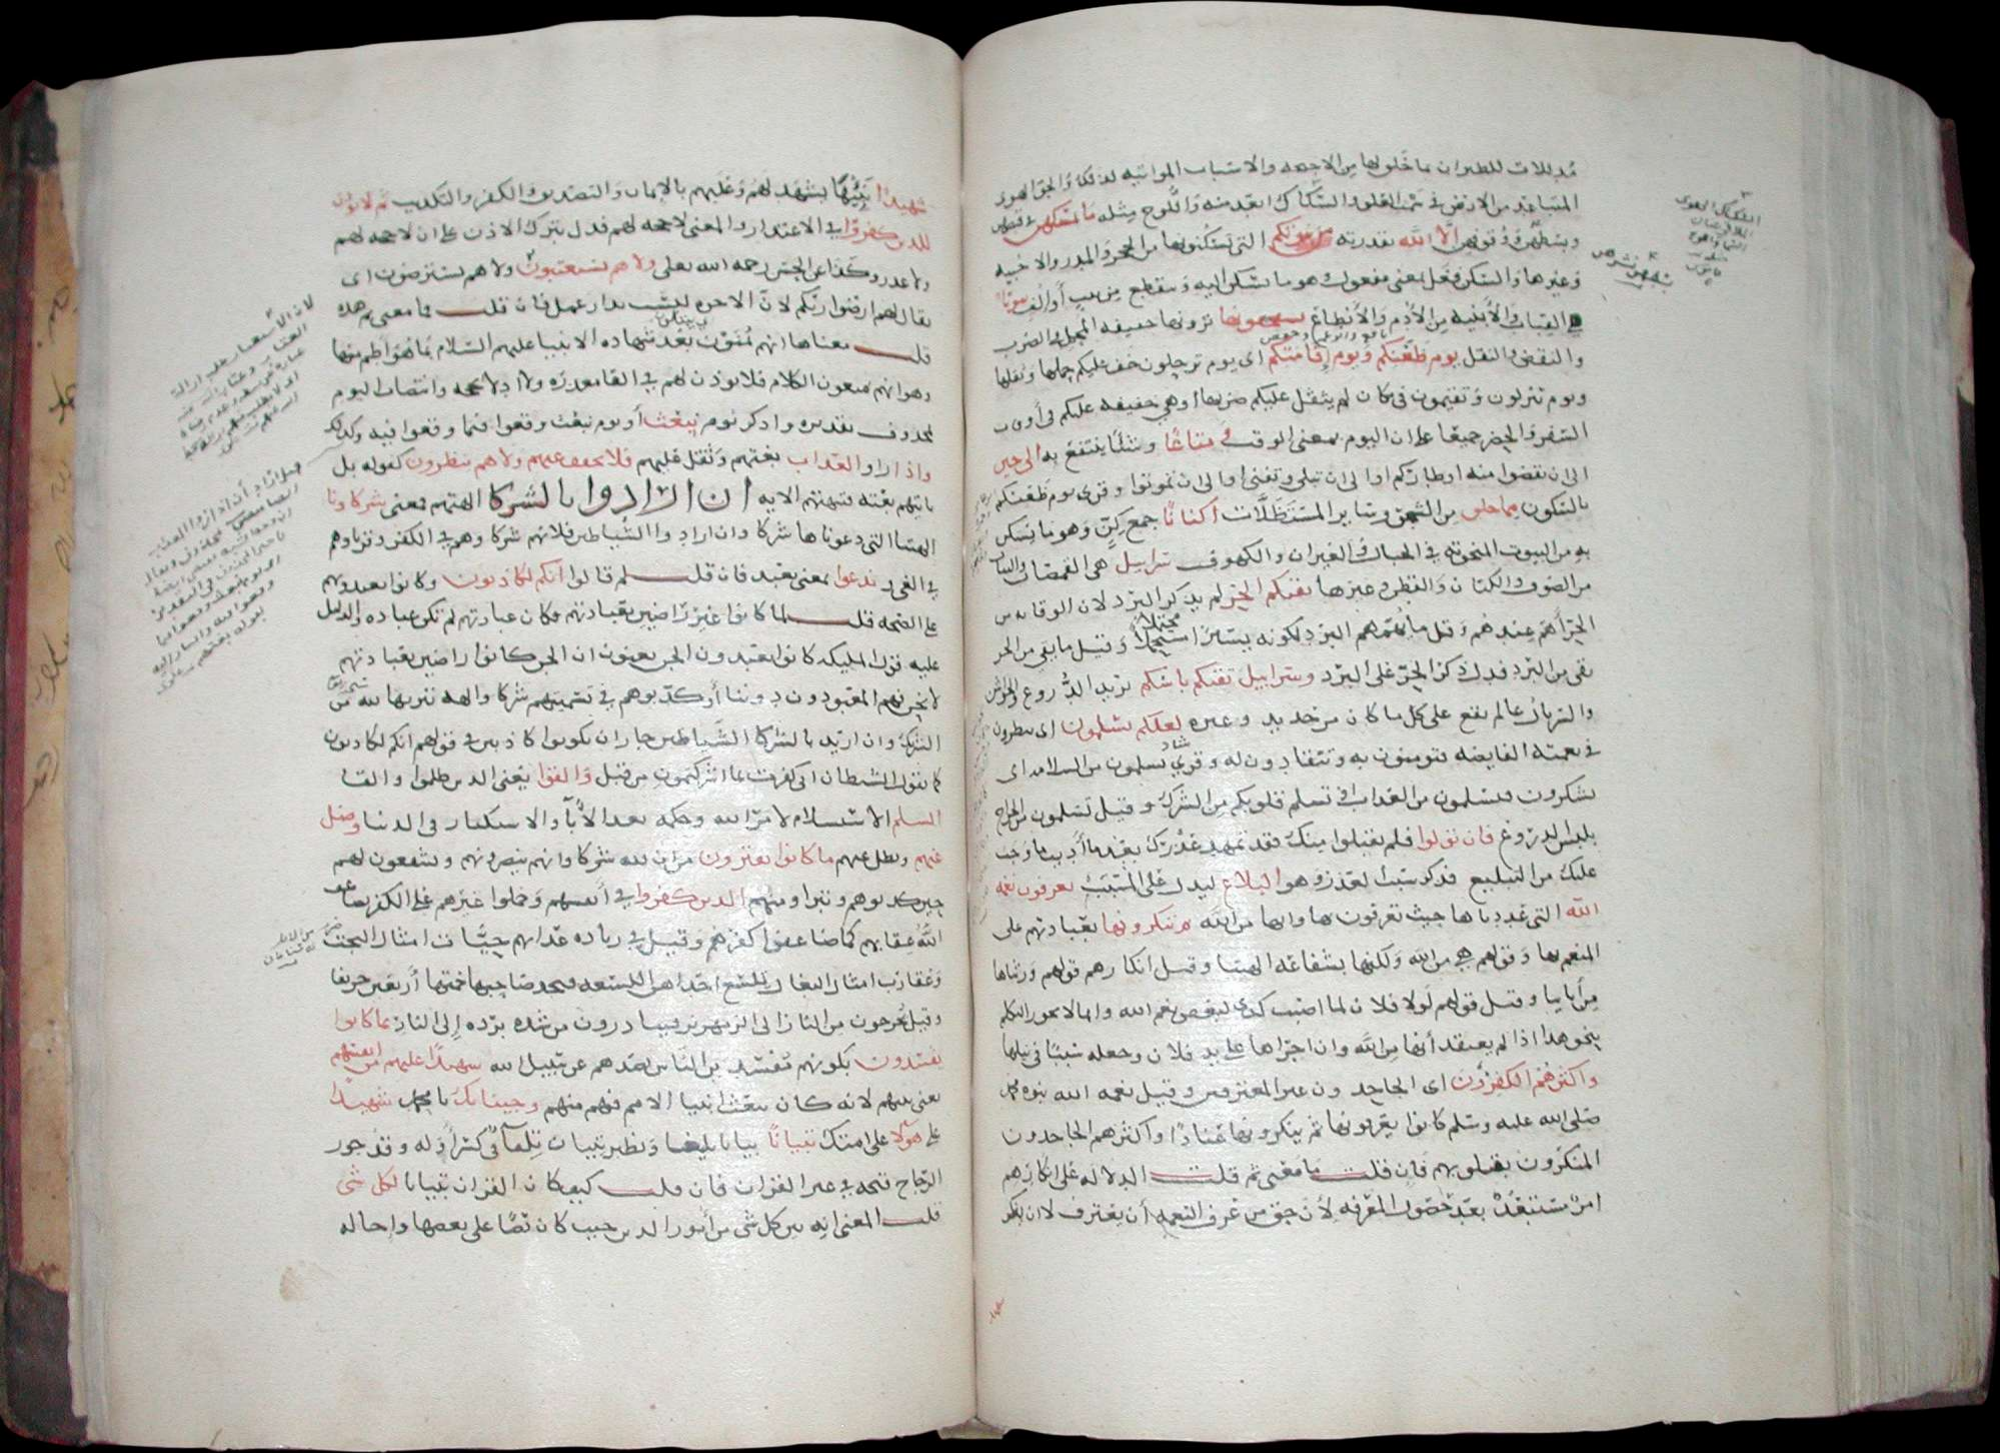 مذللات للطيران بما خلق لها من الاجنحه والاسباب المواتيه لذلك والجو الهوى
المتباعد من الارض في سمت العلو والسكاك ابعد منه واللوح مثله ما يمسكهن في قبضهن
وبسطهن ووقوفهن الا الله بقدرته من بيوتكم التي تسكنونها من الحجر والمدر والاخبيه
وغيرها والسكن فعل بمعنى مفعول وهو ما يسكن اليه وينقطع من بيت أو إلف بيوتا
هي القباب والأبنيه من الأدم والأنطاع تستخفونها ترونها خفيفه المحمل في الضرب
والنقض والنقل يوم ظعنكم ويوم إقامتكم اى يوم ترحلون خف عليكم حملها ونقلها
ويوم تنزلون وتقيمون في مكان لم يثقل عليكم ضربها او هي خفيفه عليكم في أوقات
السفر والحضر جميعا على ان اليوم بمعنى الوقت ومتاعا وشيئا ينتفع به الى حين
الى ان تقضوا منه اوطاركم او الى ان تبلى وتفنى او الى ان تموتوا وقرى يوم ظعنكم
بالسكون مما خلق من الشجر وساير المستظلات أكنانا جمع كن وهو ما يستكن
به من البيوت المنحوته في الجبال والغيران والكهوف سرابيل هي القمصان والثياب
من الصوف والكتان والقطن وغيرها تقيكم الحر لم يذكر البرد لان الوقايه من
الحر أهم عندهم وقل ما يهمهم البرد لكونه يسيرا محتملا وقيل ما يقي من الحر
يقي من البرد فدل ذكر الحر على البرد وسرابيل تقيكم باسكم يريد الدروع والجواشن
والسربال عام يقع على كل ما كان من حديد وغيره لعلكم تسلمون اى تنظرون
في نعمته الفايضه فتومنون به وتنقادون له وقرى تسلمون من السلامه اى
تشكرون فتسلمون من العذاب او تسلم قلوبكم من الشرك وقيل تسلمون من الجراح
بلبس الدروع فان تولوا فلم يقبلوا منك فقد تمهد عذرك بعد ما أديت ما وجب
عليك من التبليغ فذكر سبب العذر وهو البلاغ ليدل على المسبب يعرفون نعمه
الله التى عددناها حيث يعترفون بها وانها من الله ثم ينكرونها بعبادتهم غير
المنعم بها وقولهم هي من الله ولكنها بشفاعه الهتنا وقيل انكارهم قولهم ورثناها
من أباينا وقيل قولهم لولا فلان لما اصبت كذا لبعض نعم الله وانما لا يجوز التكلم
بنحو هذا اذا لم يعتقد أنها من الله وان اجراها على يد فلان وجعله سببا في نيلها
واكثرهم الكافرون اى الجاحدون غير المعترفين وقيل نعمه الله نبوه محمد
صلى الله عليه وسلم كانوا يعرفونها ثم ينكرونها عنادا واكثرهم الجاحدون
المنكرون بقلوبهم فان قلت ما معنى ثم قلت الدلاله على ان انكارهم
امر مستبعد بعد حصول المعرفه لأن حق من عرف النعمه أن يعترف لا ان ينكر
شهيدا نبيها يشهد لهم وعليهم بالايمان والتصديق والكفر والتكذيب ثم لا يوذن
للذين كفروا في الاعتذار والمعنى لا حجه لهم فدل بترك الاذن على ان لا حجه لهم
ولا عذر وكذا عن الحسن رحمه الله تعلى ولا هم يستعتبون ولا هم يسترضون اى
يقال لهم ارضوا ربكم لان الاخره ليست بدار عمل فان قلت فما معنى ثم هذه
قلت معناها انهم يمنون بعد شهاده الانبيا عليهم السلام بما هو اطم منها
وهو انهم يمنعون الكلام فلا يوذن لهم في القا معذره ولا ادلا بحجه وانتصاب اليوم
بمحذوف تقديره واذكر يوم نبعث أو يوم نبعث وقعوا فيما وقعوا فيه وكذلك
واذا راوا العذاب بغتهم وثقل عليهم فلا يخفف عنهم ولا هم ينظرون كقوله بل
ياتيهم بغته فتبهتهم الايه ان ارادوا بالشركا الهتهم فمعنى شركاونا
الهتنا التى دعوناها شركا وان ارادوا الشياطين فلانهم شركاوهم في الكفر وقرناوهم
في الغى وندعوا بمعنى نعبد فان قلت لم قالوا انكم لكاذبون وكانوا يعبدونهم
على الصحه قلت لما كانوا غير راضين بعبادتهم فكان عبادتهم لم تكن عباده والدليل
عليه قول المليكه كانوا يعبدون الجن يعنون ان الجن كانوا راضين بعبادتهم
لا نحن فهم المعبودون دوننا أو كذبوهم في تسميتهم شركا والهه تنزيها لله من
الشرك وان اريد بالشركا الشياطين جاز ان يكونوا كاذبين في قولهم انكم لكاذبون
كما يقول الشيطان انى كفرت بما اشركتمون من قبل والقوا يعنى الذين ظلموا والقا
السلم الاستسلام لامر الله وحكمه بعد الابآ والاستكبار في الدنيا وضل
عنهم وبطل عنهم ما كانوا يفترون من ان لله شركا وانهم ينصرونهم ويشفعون لهم
حين كذبوهم وتبراوا منهم الذين كفروا في أنفسهم وحملوا غيرهم على الكفر يضاعف
الله عقابهم كما ضاعفوا كفرهم وقيل في زياده عذابهم حيات امثال البخت
وعقارب امثال البغال تلسع احداهن اللسعه فيجد صاحبها حمتها أربعين خريفا
وقيل يخرجون من النار الى الزمهرير فيبادرون من شده برده إلى النار بما كانوا
يفسدون بكونهم مفسدين الناس بصدهم عن سبيل الله شهيدا عليهم من انفسهم
يعنى نبيهم لانه كان يبعث انبيا الامم فيهم منهم وجينا بك يا محمد شهيدا
على هولا على امتك تبيانا بيانا بليغا ونظير تبيان تلقآ في كسر أوله وقد جوز
الزجاج فتحه في غير القران فان قلت كيف كان القران تبيانا لكل شى
قلت المعنى انه بين كل شى من أمور الدين حيث كان نصا على بعضها واحاله